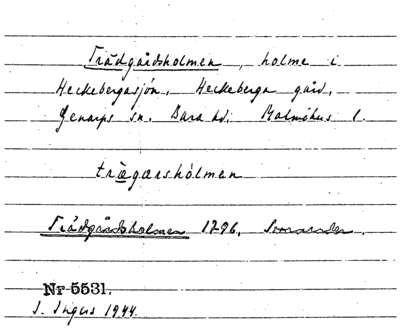 Trädgårdsholmen, holme i
Heckebergasjön, Heckeberga gård,
Genarps sn. Bara hd. Malmöhus l.
trǣgarshólmen
Trädgårdsholmen 1796,
Nr 5531.
I. Ingers 1944.